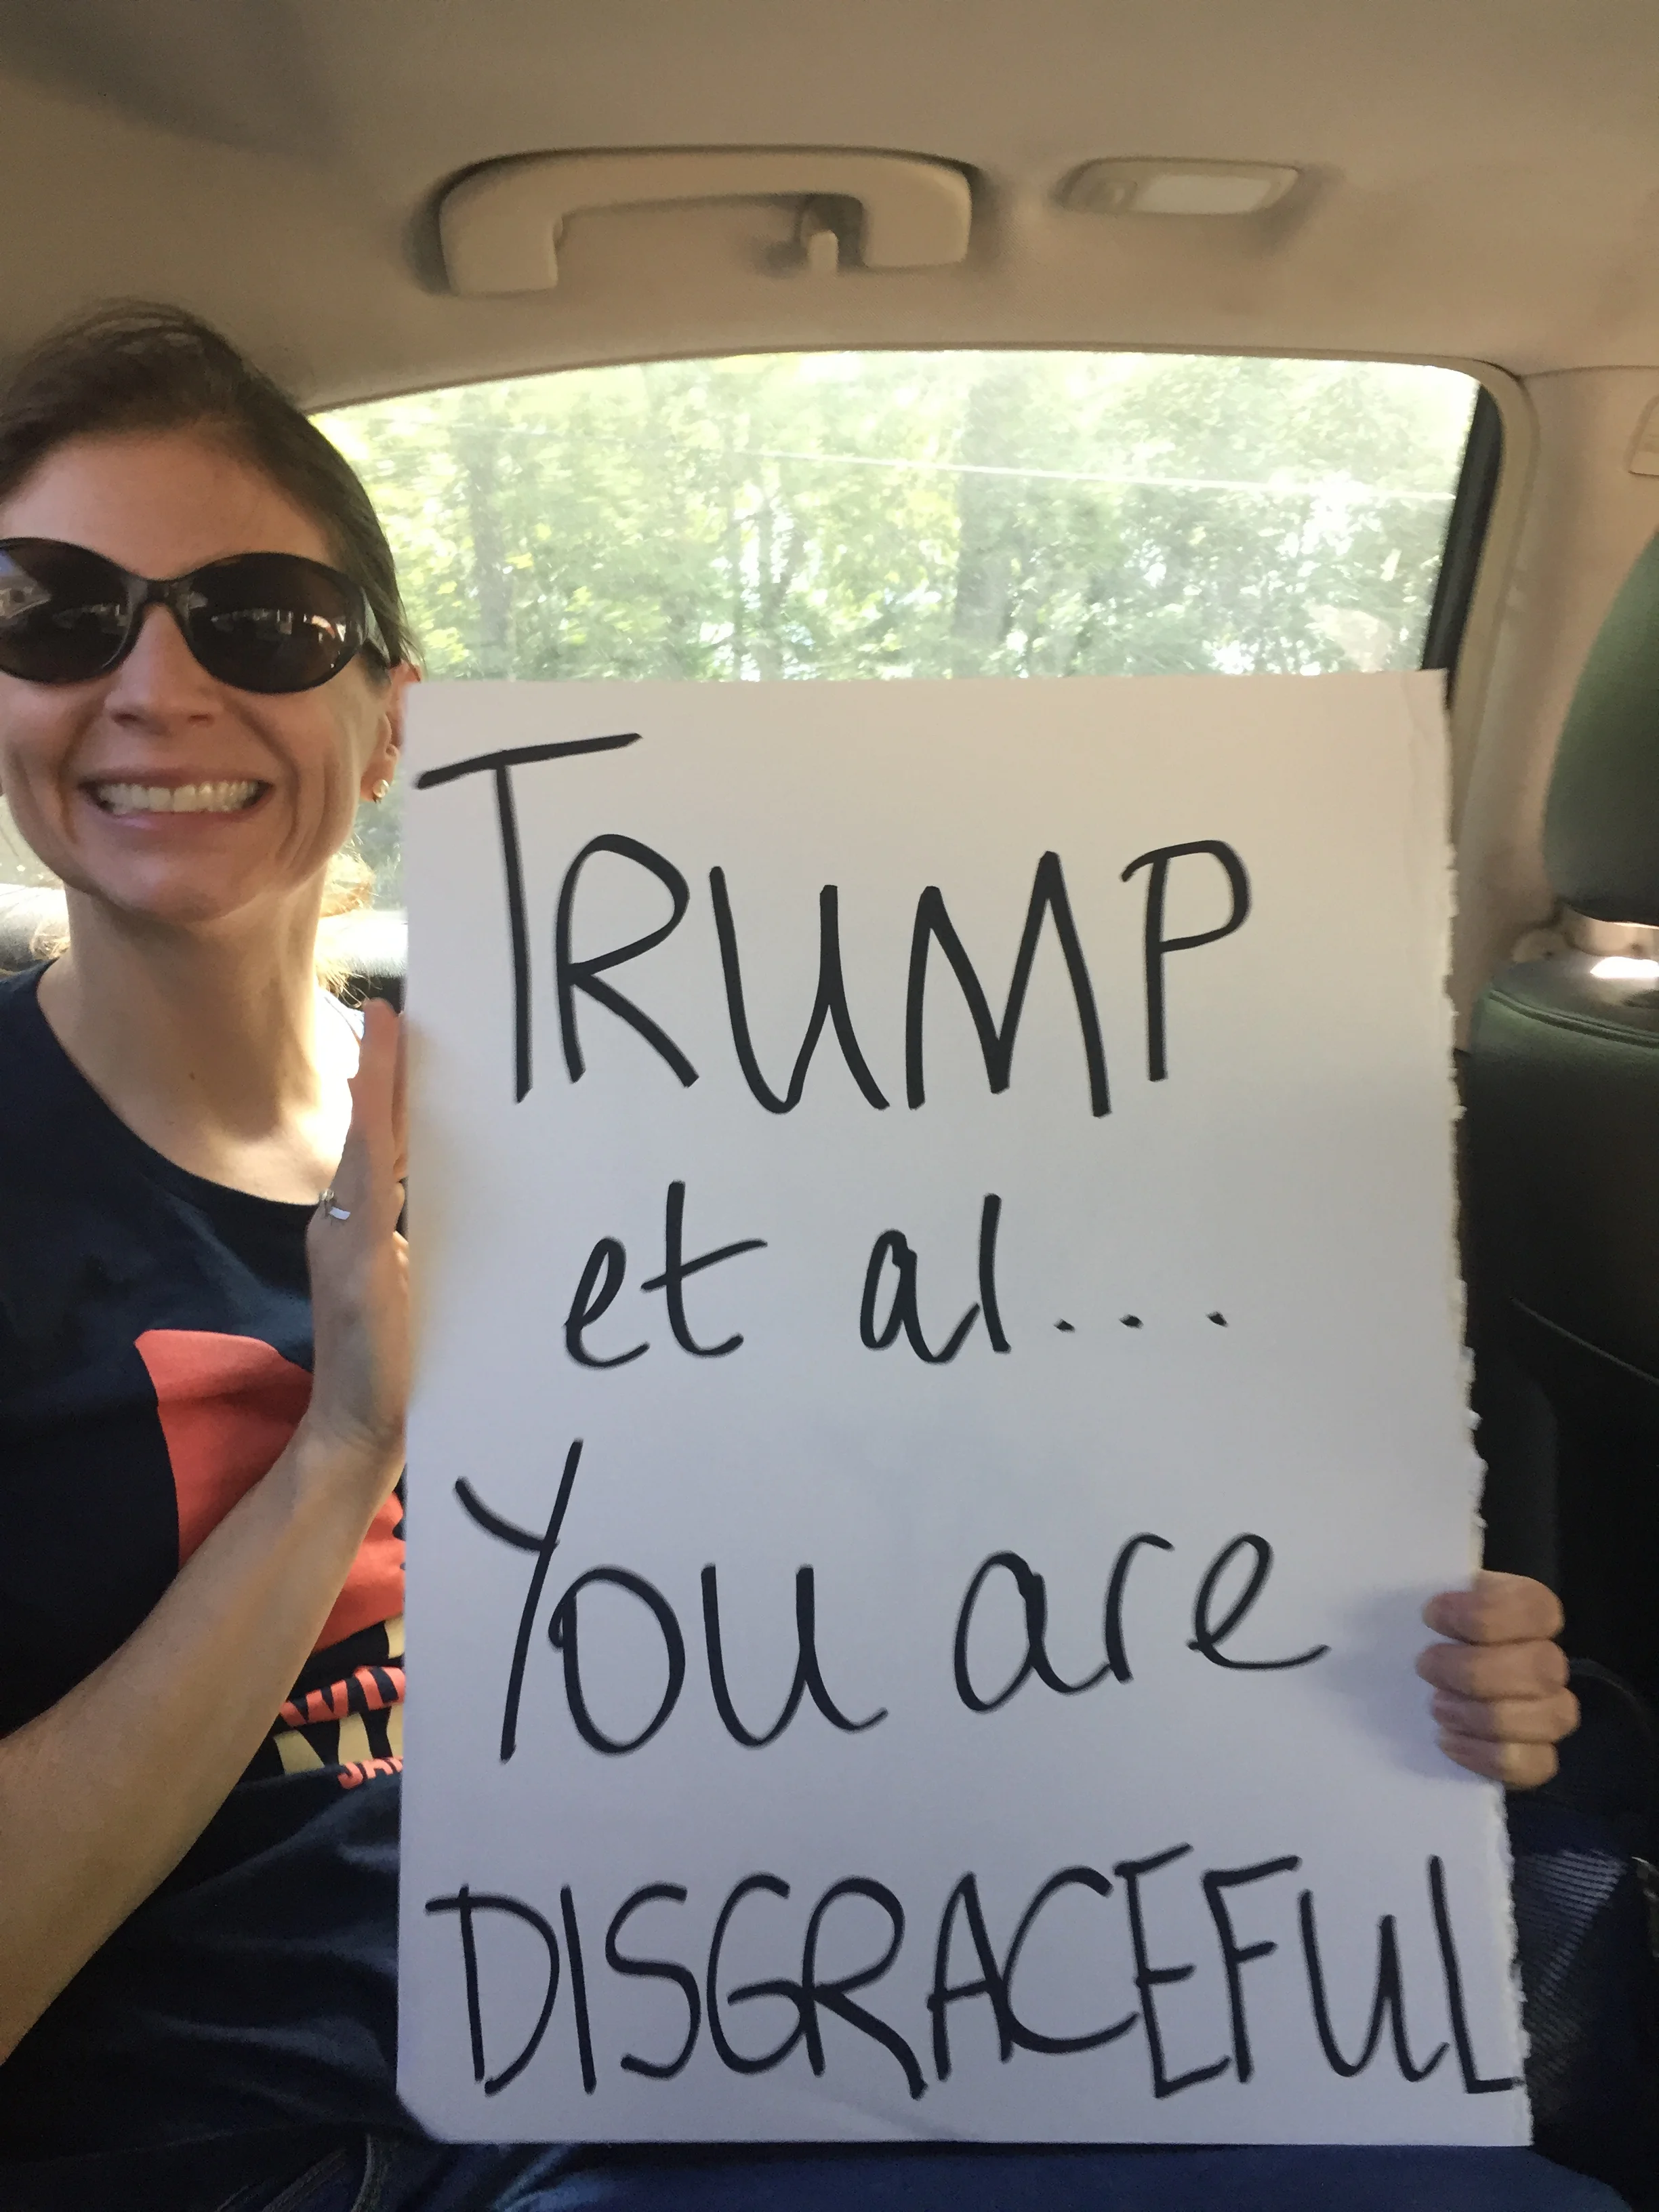 TRUMP
et al...
You are
DISGRACEFUL